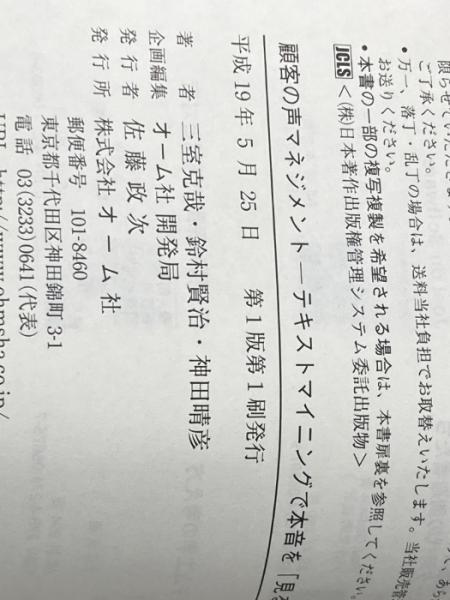 限らせていただきます
ご了承ください。
・万一、落丁・乱丁の場合は、送料当社負担でお取替えいたします。当社販売管
お送りください。
・本書の一部の複写複製を希望される場合は、本書扉裏を参照してください。
JCLS <(株)日本著作出版権管理システム委託出版物>
顧客の声マネジメント―テキストマイニングで本音を「見
平成19年5月25日 第1版第1刷発行
著者 三室克哉・鈴村賢治・神田晴彦
企画編集 オーム社 開発局
発行者 佐藤政次
発行所 株式会社 オーム社
郵便番号 101-8460
東京都千代田区神田錦町3-1
電話 03(3233)0641(代表)
URL http://www.ohmsha.co.jp/